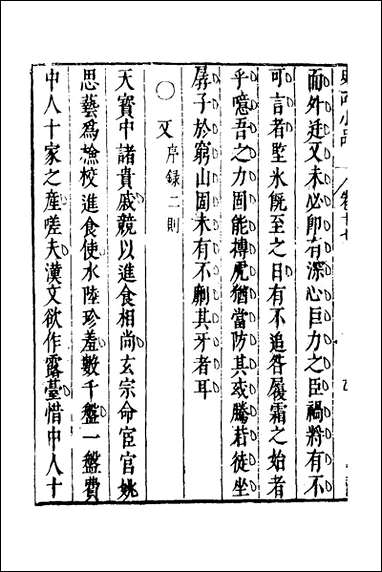 小品 卷十七
而外廷又未必即有深心巨力之臣禍將有不
可言者堅氷旣至之日有不追咎履霜之始者
乎噫吾之力固能搏虎猶當防其或騰若徒坐
孱子於窮山固未有不劘其牙者耳
○又序録二則
天寶中諸貴戚競以進食相尚玄宗命宦官姚
思藝爲檢校進食使水陸珍羞數千盤一盤費
中人十家之產嗟夫漢文欲作露臺惜中人十